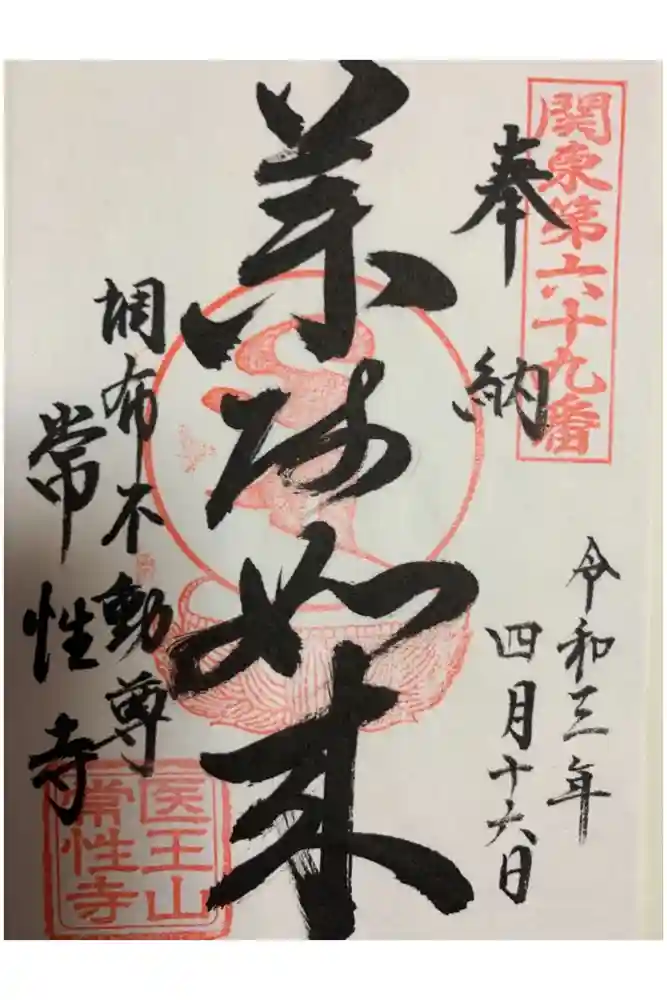 関東第六十九番
奉納
令和三年
四月十六日
薬師如来
調布不動尊
常性寺
医王山
常性寺